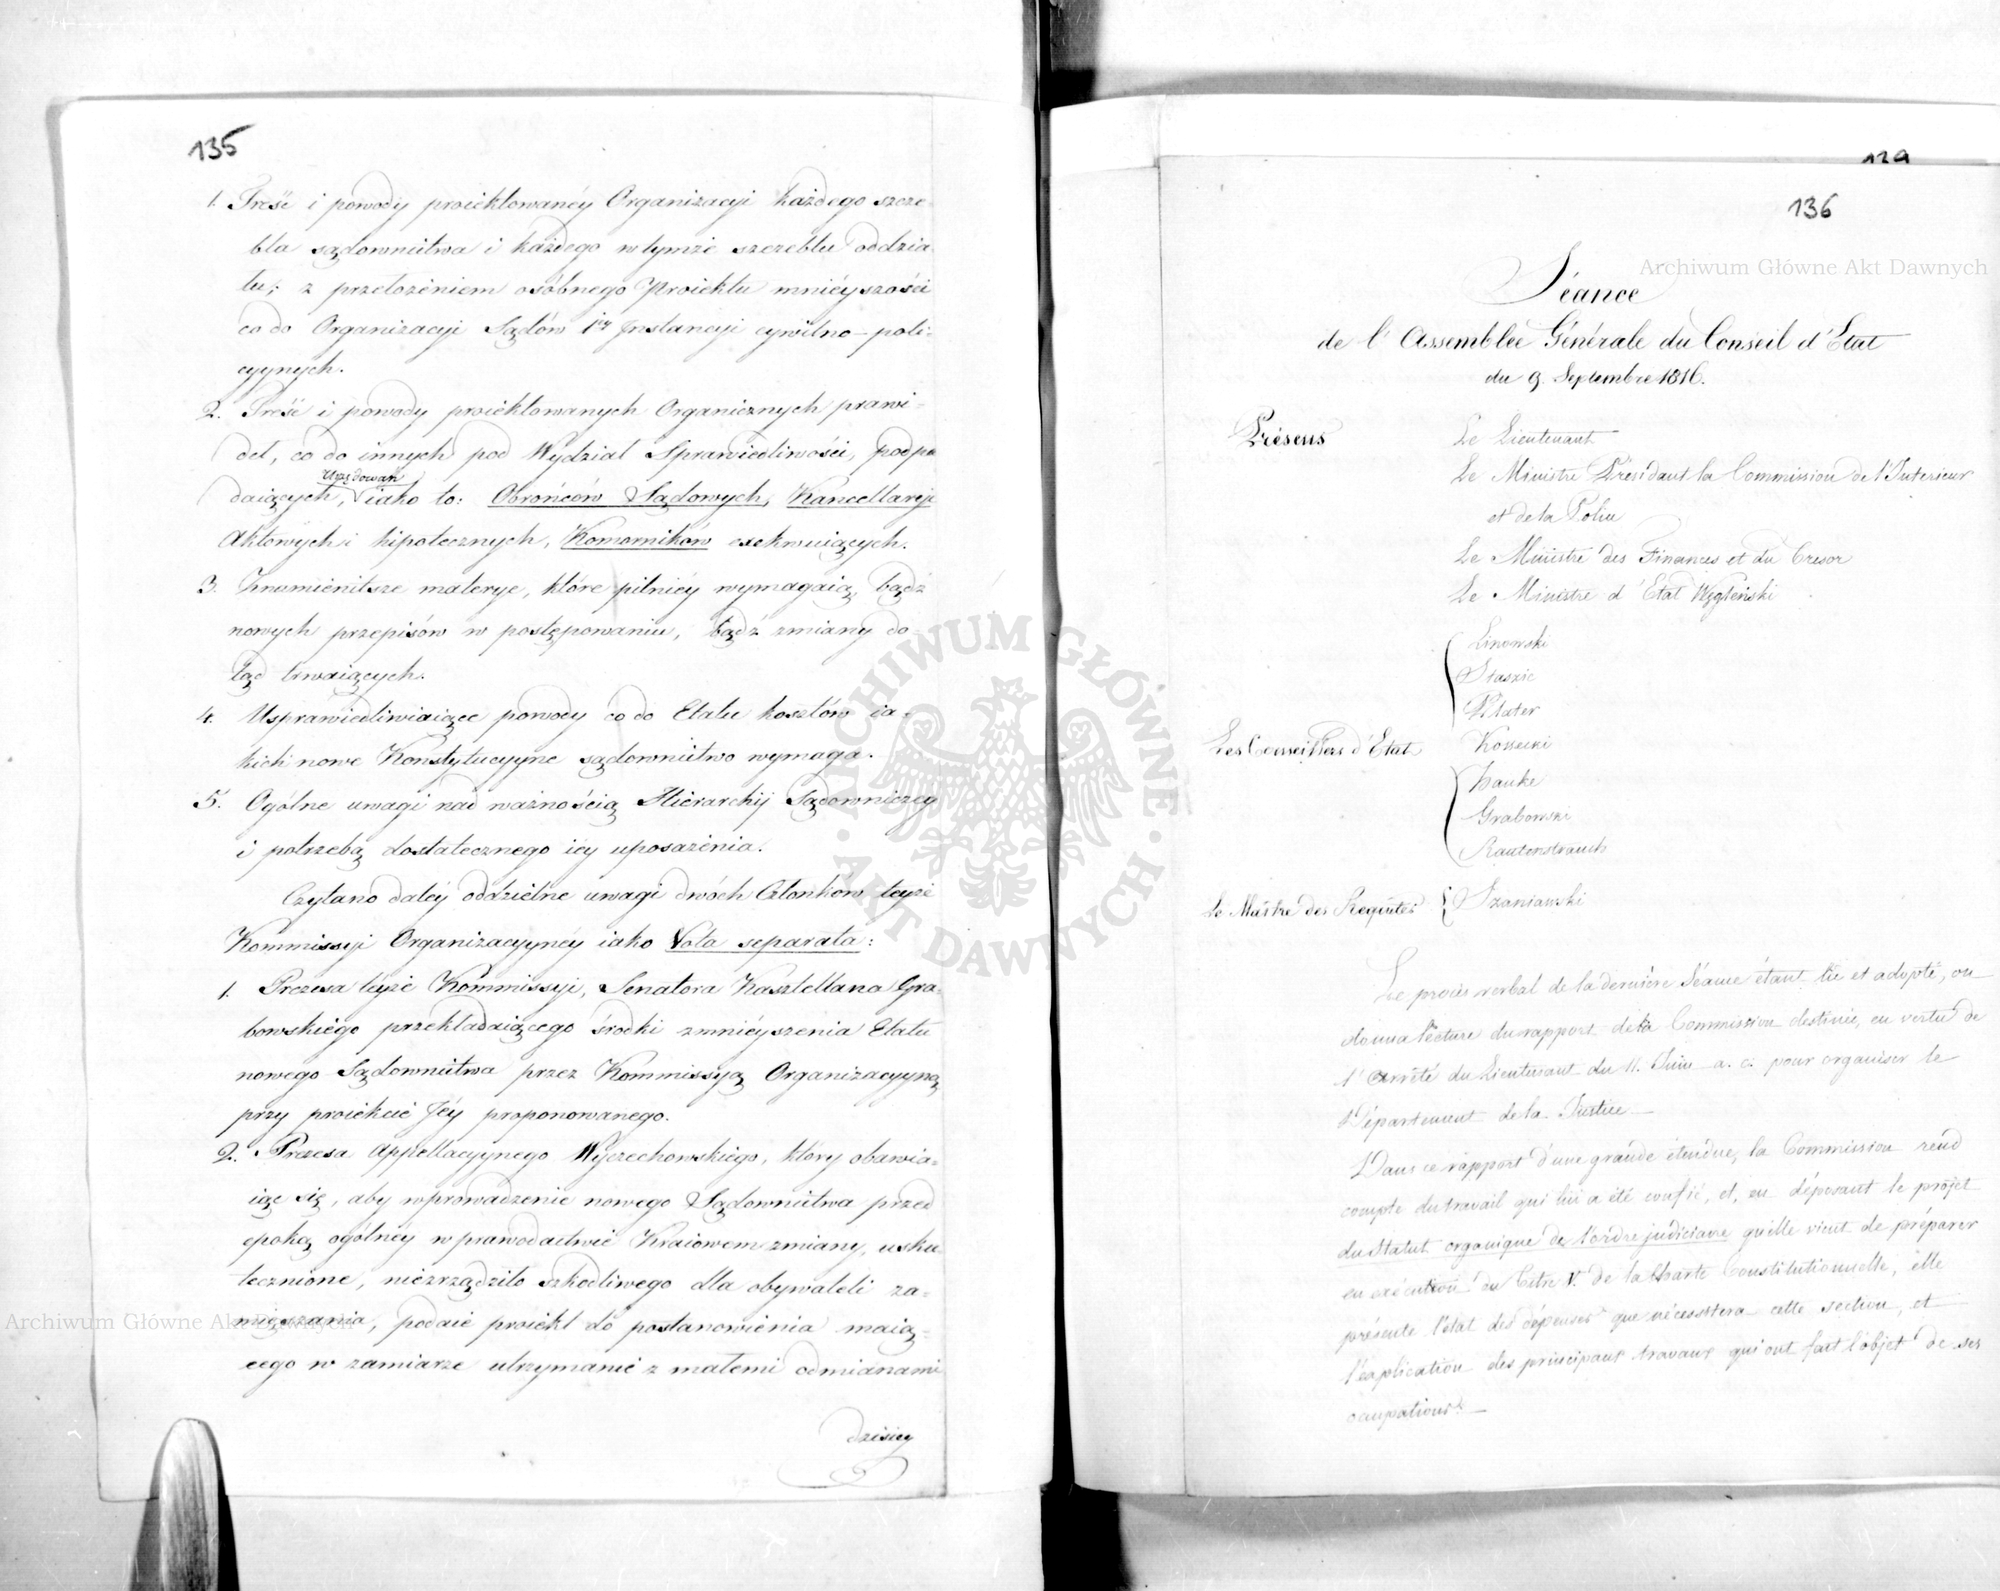 135
1. Treść i powody proiektowanéy Organizacyi każdego szcze-
bla sądownictwa i każdego w tymże szczeblu oddzia-
łu; z przełożeniem osóbnego Proiektu mniéyszości
co do Organizacyi Sądów 1éy Instancyi cywilno-poli-
cyynych.
2. Treść i powody proiektowanych Organicznych prawi-
deł, co do innych pod Wydział Sprawiedliwości, podpa
Urzędowań
daiących, iako to: Obrońców Sądowych, Kancellaryi
Aktowych i hipotecznych, Komorników exekwuiących.
3. Znamienitsze materye, które pilniéy wymagaią, bądź
nowych przepisów w postępowaniu, bądź zmiany do-
tąd trwaiących.
4. Usprawiedliwiaiące powody co do Etatu kosztów ia-
kich nowe Konstytucyyne sądownictwo wymaga.
5. Ogólne uwagi nad ważnością Hierarchij Sądowniczey
i potrzebą dostatecznego iéy uposażenia.
Czytano daléy oddzielne uwagi dwóch Członków teyże
Kommissyi Organizacyynéy iako Vota separata:
1. Prezesa teyże Kommissyi, Senatora Kasztellana Gra-
bowskiégo przekładaiącego środki zmniéyszenia Etatu
nowego Sądownictwa przez Kommissyą Organizacyyną
przy proiekcie Jéy proponowanego.
2. Prezesa Appellacyynego Wyczechowskiégo, który obawia-
iąc się, aby wprowadzenie nowego Sądownictwa przed
epoką ogólnéy w prawodactwie Kraiowem zmiany, usku-
tecznione, niezrządziło szkodliwego dla obywateli za-
mięszania, podaie proiekt do postanowienia maią-
cego w zamiarze utrzymanie z małemi odmianami
dzisiey
129
136
Séance
de l'Assemblée Générale du Conseil d'Etat
du 9. Septembre 1816.
Présens
Le Lieutenant
Le Ministre Présidant la Commission de l'Interieur
et de la Police
Le Ministre des Finances et du Tresor
Le Ministre d'Etat Węgleński
Linowski
Staszic
Plater
Les Conseillers d'Etat
Kossecki
Hauke
Grabowski
Rautenstrauch
Le Maître des Requêtes { Szaniawski
Le procès verbal de la dernière Séance étant lû et adopté, on
donna lecture du rapport de la Commission destinée, en vertu de
l'Arrêté du Lieutenant du 11. Juin a. c. pour organiser le
Département de la Justice.—
Dans ce rapport d'une grande étendue, la Commission rend
compte du travail qui lui a été confié, et, en déposant le projet
du Statut organique de l'ordre judiciaire qu'elle vient de préparer
en exécution du Titre V. de la Charte Constitutionnelle, elle
présente l'état des dépenses que nécessitera cette section, et
l'explication des principaux travaux qui ont fait l'objet de ses
occupations.—
Archiwum Główne Akt Dawnych
Archiwum Główne Akt Dawnych
ARCHIWUM GŁÓWNE · AKT DAWNYCH ·